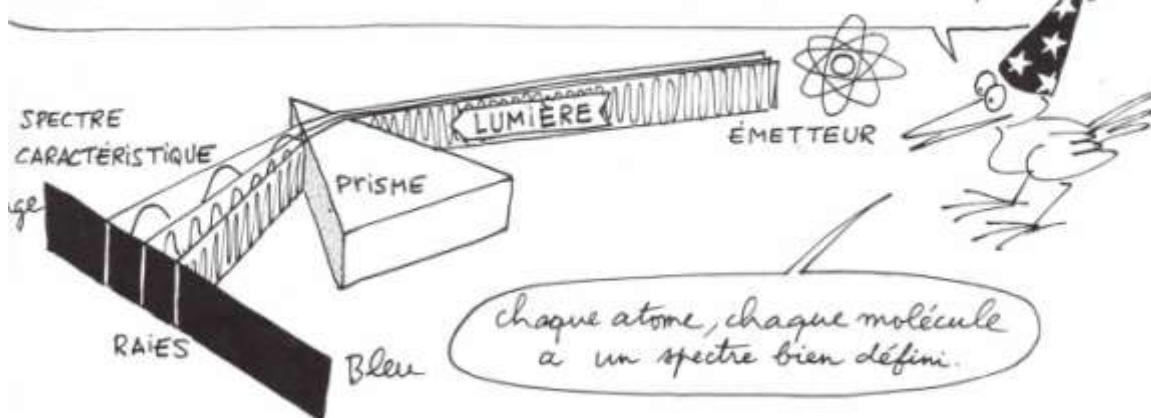 SPECTRE
CARACTÉRISTIQUE
LUMIÈRE
ÉMETTEUR
PRISME
ge
RAIES
Bleu
chaque atome, chaque molécule
a un spectre bien défini.